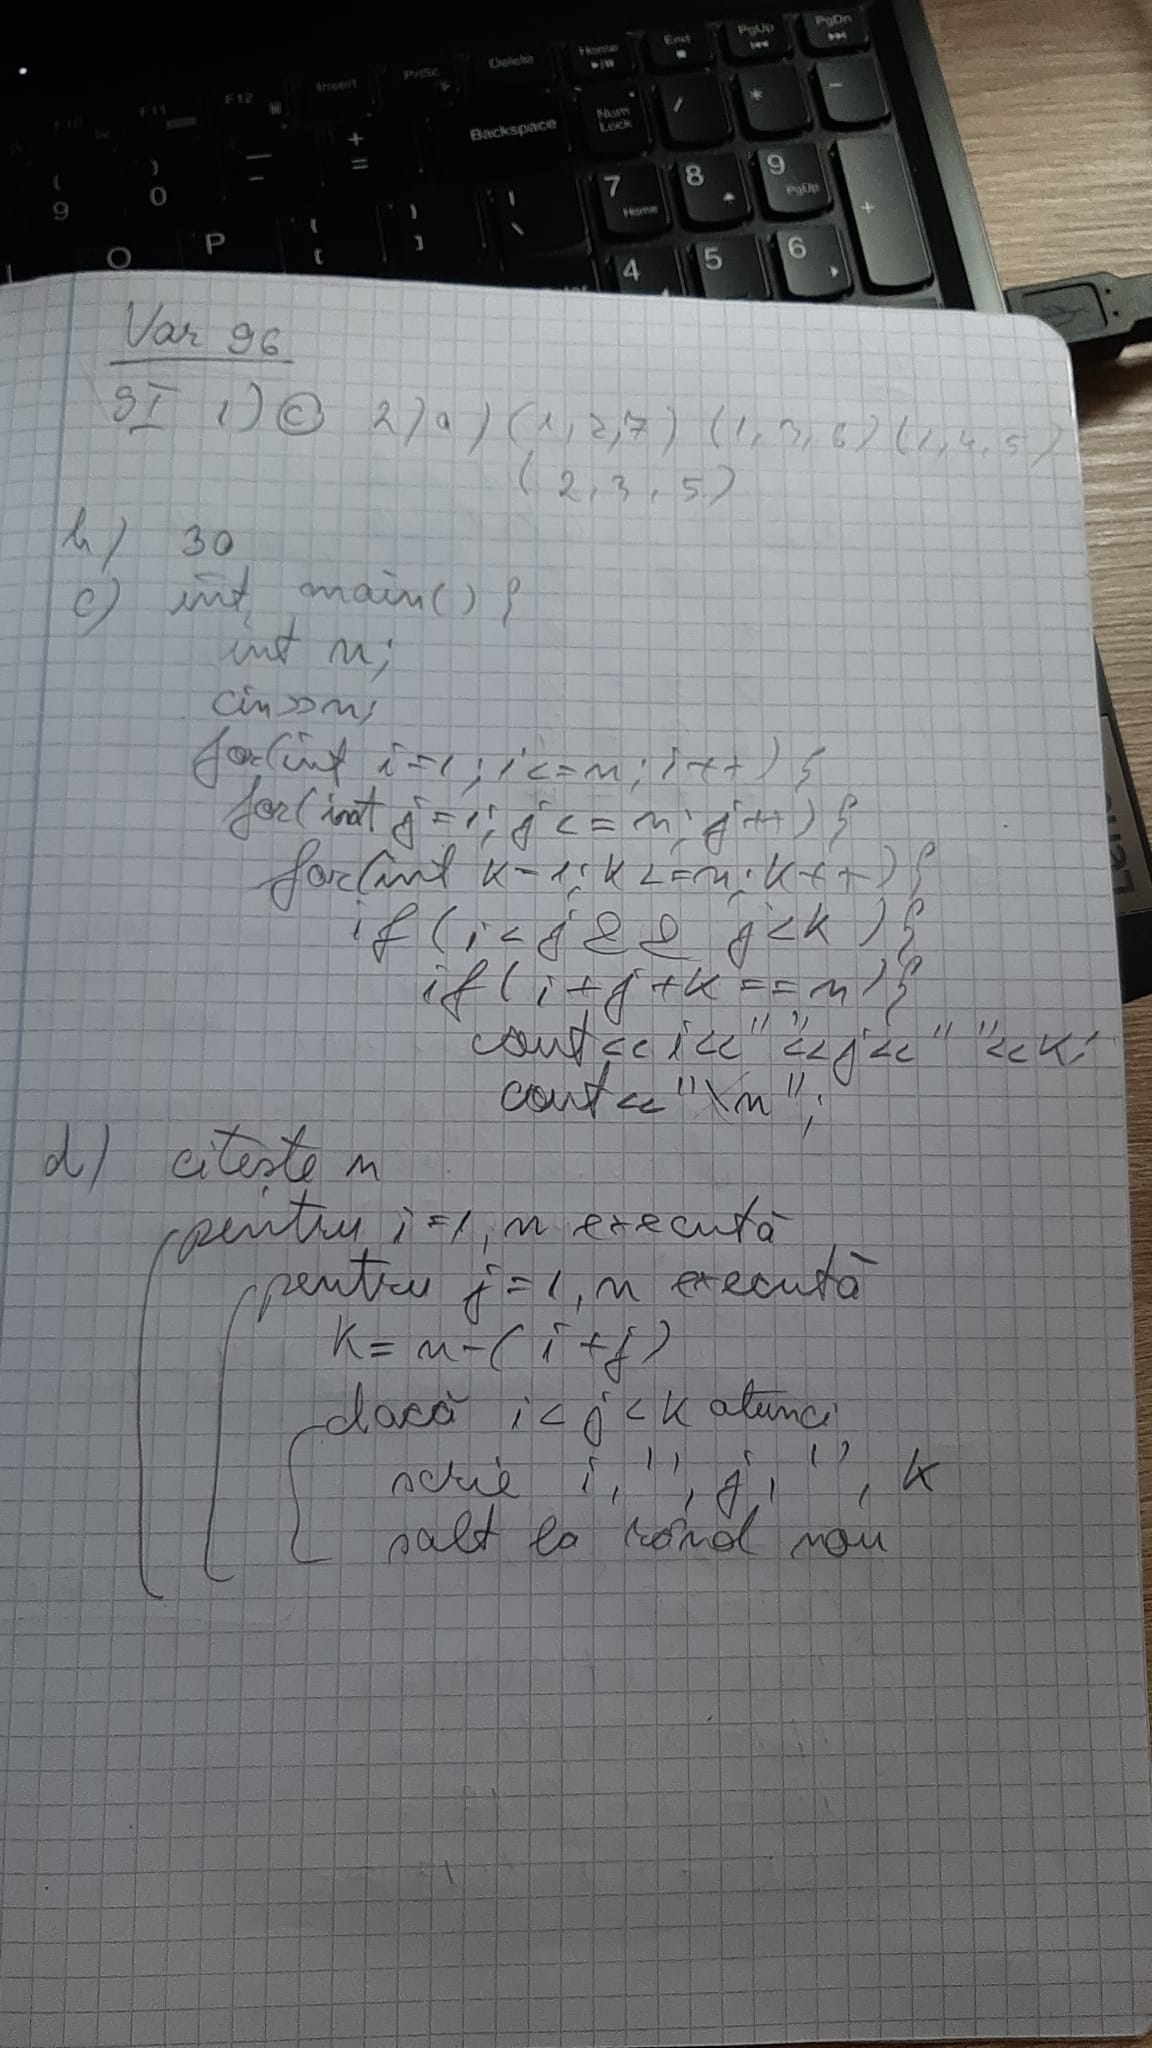 F10
F11
F12
Insert
PrtSc
Delete
Home
End
PgUp
PgDn
( 9
) 0
— -
+ =
Backspace
Num Lock
/
*
-
O
P
{ [
} ]
| \
7 Home
8
9 PgUp
+
4
5
6
Var 96
SI 1) c 2) a) (1,2,7) (1,3,6) (1,4,5)
(2,3,5)
b) 30
c) int main() {
int n;
cin>>n;
for(int i=1; i<=n; i++) {
for(int j=1; j<=n; j++) {
for(int k-1; k<=n; k++) {
if (i<j && j<k) {
if (i+j+k==n) {
cout<<i<<" "<<j<<" "<<k;
cout<<"\n";
d) citește n
pentru i=1, n execută
pentru j=1, n execută
k=n-(i+j)
dacă i<j<k atunci
scrie i, ' ', j, ' ', k
salt la rând nou